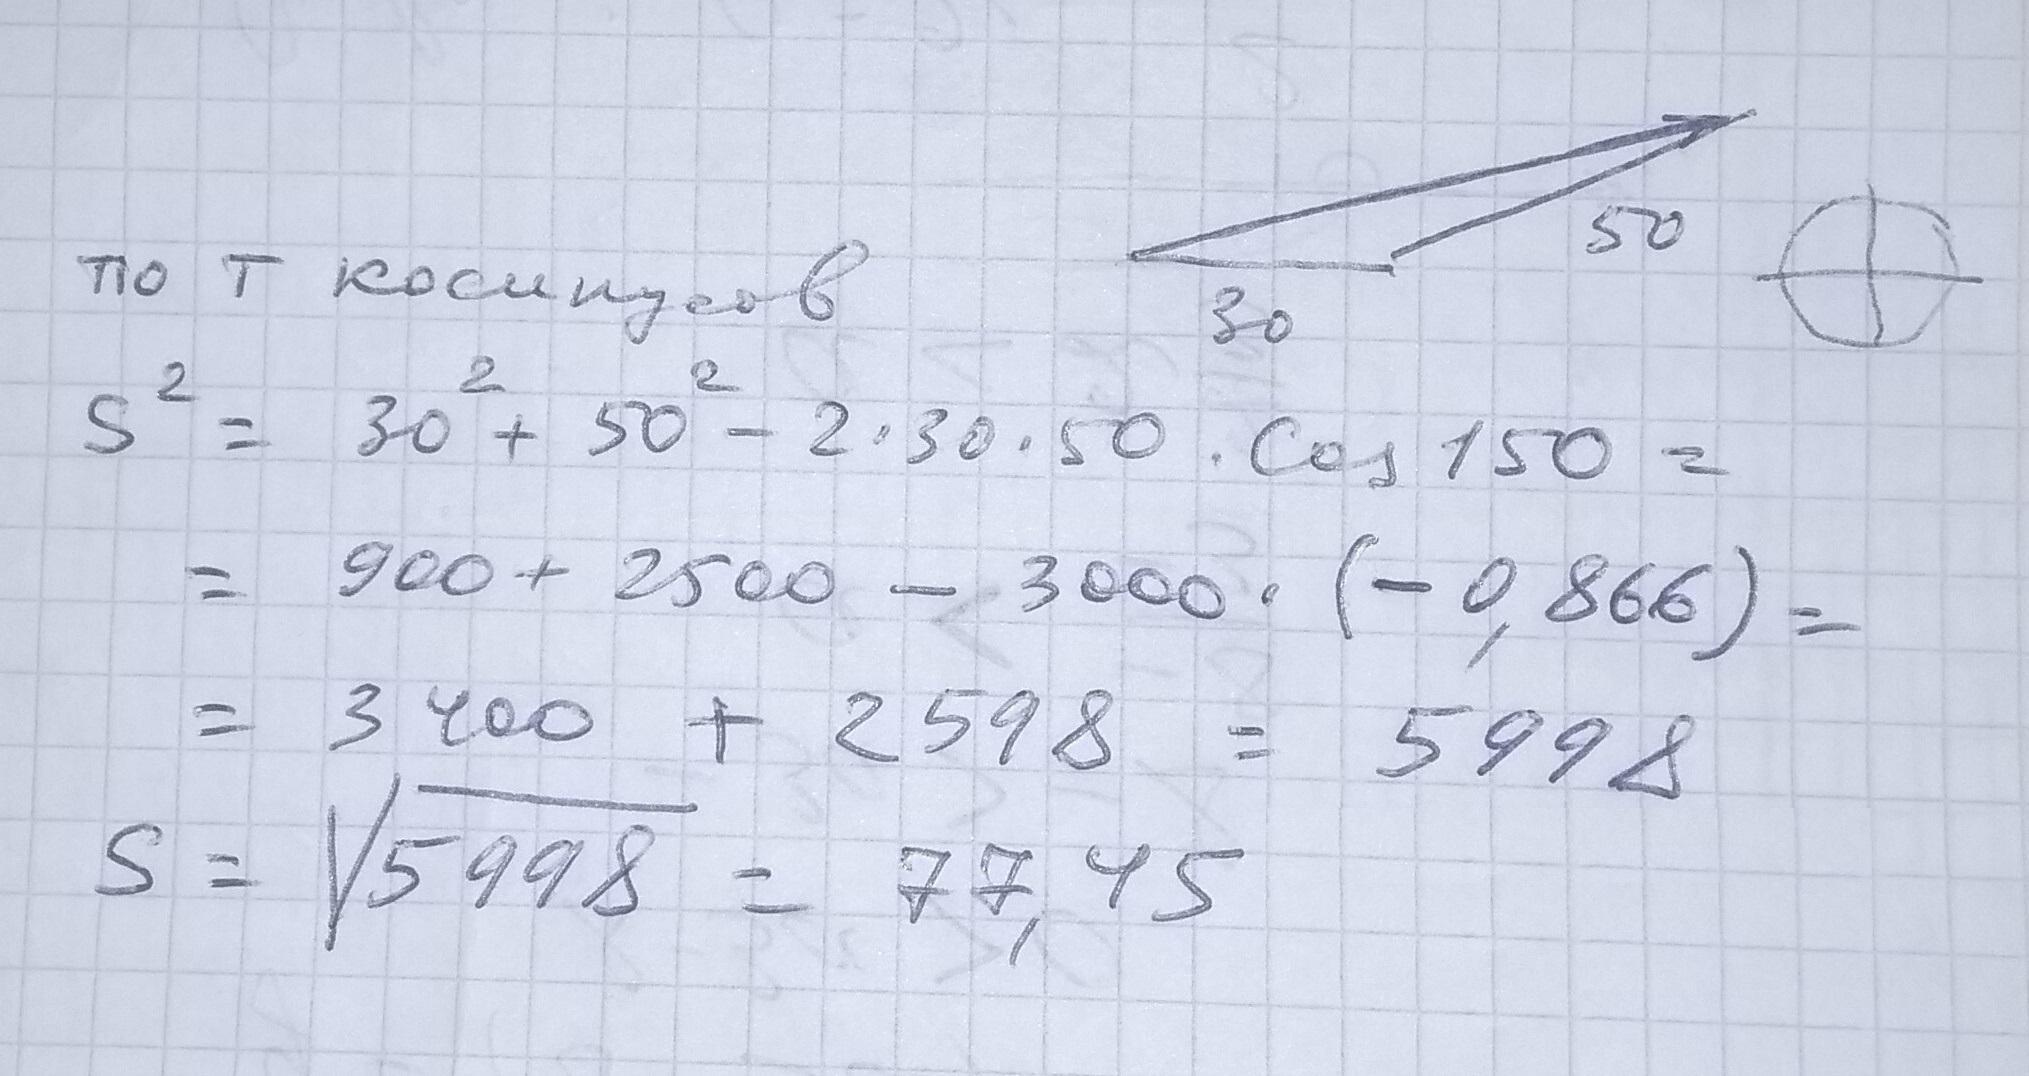 50
30
по т косинусов
S² = 30² + 50² - 2·30·50·Cos 150 =
= 900 + 2500 - 3000·(-0,866) =
= 3400 + 2598 = 5998
S = √5998 = 77,45